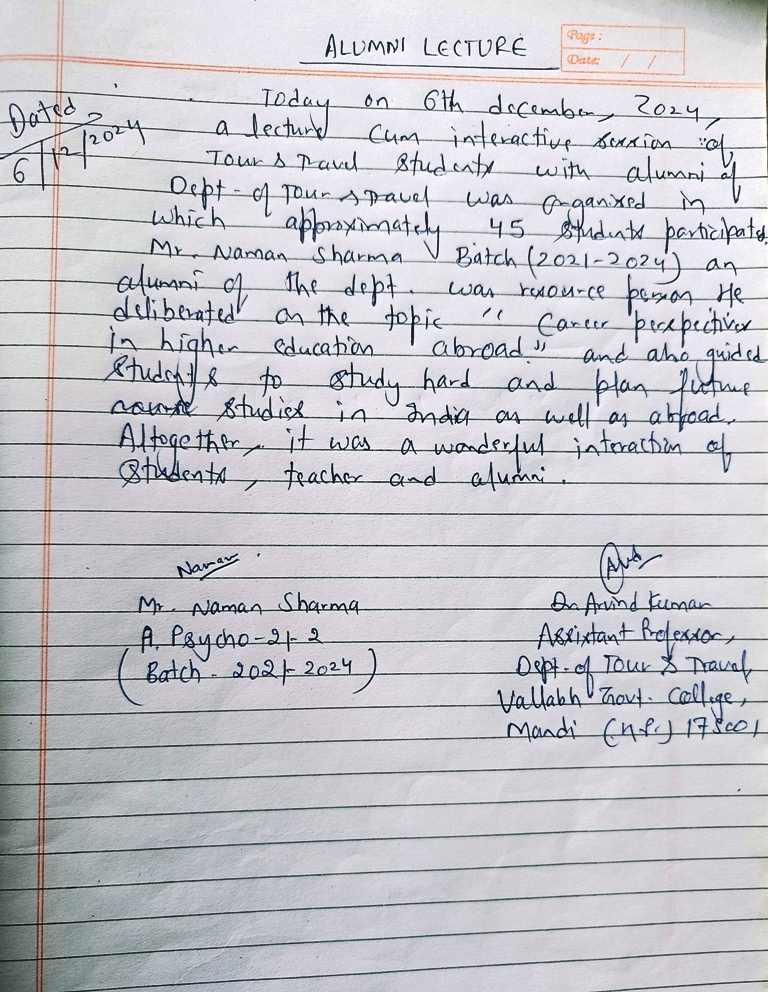 ALUMNI LECTURE
Page :
Date: / /
Dated
6/12/2024
Today on 6th december, 2024,
a lecture cum interactive session of
Tour & Travel Students with alumni of
Dept. of Tour & Travel was organised in
which approximately 45 Students participated.
Mr. Naman Sharma Batch (2021-2024) an
alumni of the dept. was resource person He
deliberated on the topic " Career perspectives
in higher education abroad." and also guided
Students to study hard and plan future
studies in India as well as abroad.
Altogether, it was a wonderful interaction of
Students, teacher and alumni.
Naman
Mr. Naman Sharma
A. Psycho-21-2
(Batch - 2021-2024)
Dr Arvind Kumar
Assistant Professor,
Dept. of Tour & Travel
Vallabh Govt. College,
Mandi (H.P.) 175001